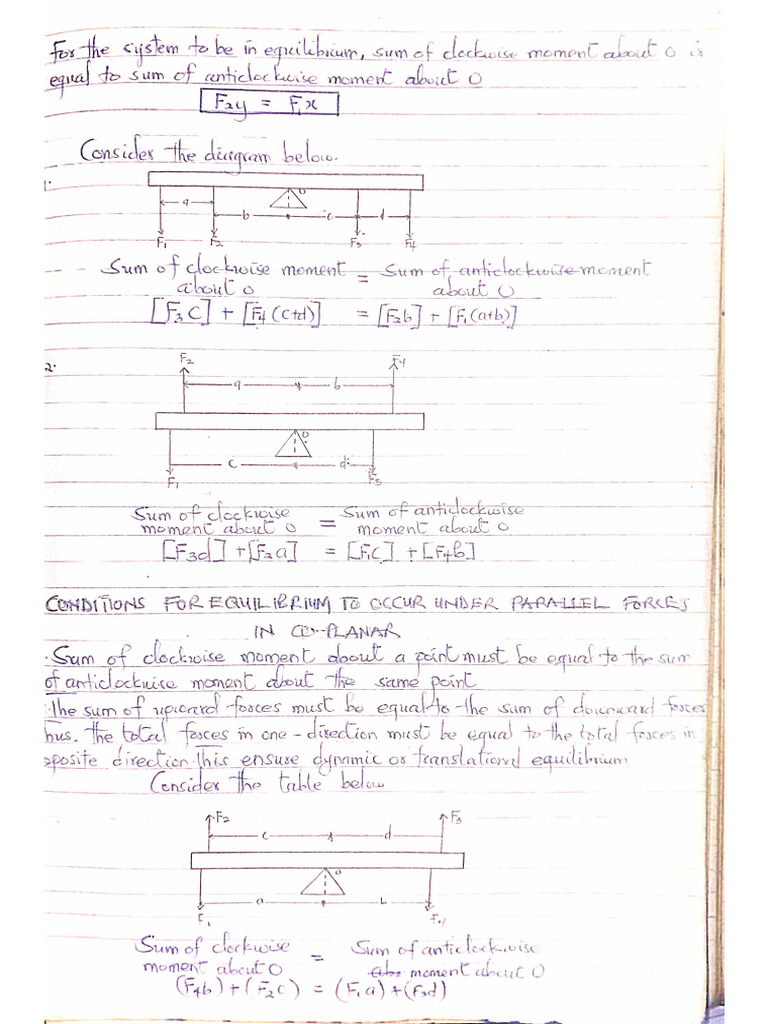 For the system to be in equilibrium, sum of clockwise moment about O is
equal to sum of anticlockwise moment about O
F2y = F1x
Consider the diagram below.
1.
O
a
b
c
d
F1
F2
F3
F4
Sum of clockwise moment = Sum of anticlockwise moment
about O about O
[F3C] + [F4(C+d)] = [F2b] + [F1(a+b)]
2.
F2
F4
a
b
O
c
d
F1
F3
Sum of clockwise = Sum of anticlockwise
moment about O moment about O
[F3d] + [F2a] = [F1C] + [F4b]
CONDITIONS FOR EQUILIBRIUM TO OCCUR UNDER PARALLEL FORCES
IN CO-PLANAR
Sum of clockwise moment about a point must be equal to the sum
of anticlockwise moment about the same point
The sum of upward forces must be equal to the sum of downward forces
hus. The total forces in one-direction must be equal to the total forces in
pposite direction. This ensure dynamic or translational equilibrium
Consider the table below
F2
F3
c
d
O
a
F1
F4
Sum of clockwise = Sum of anticlockwise
moment about O moment about O
(F4b) + (F2c) = (F1a) + (F3d)